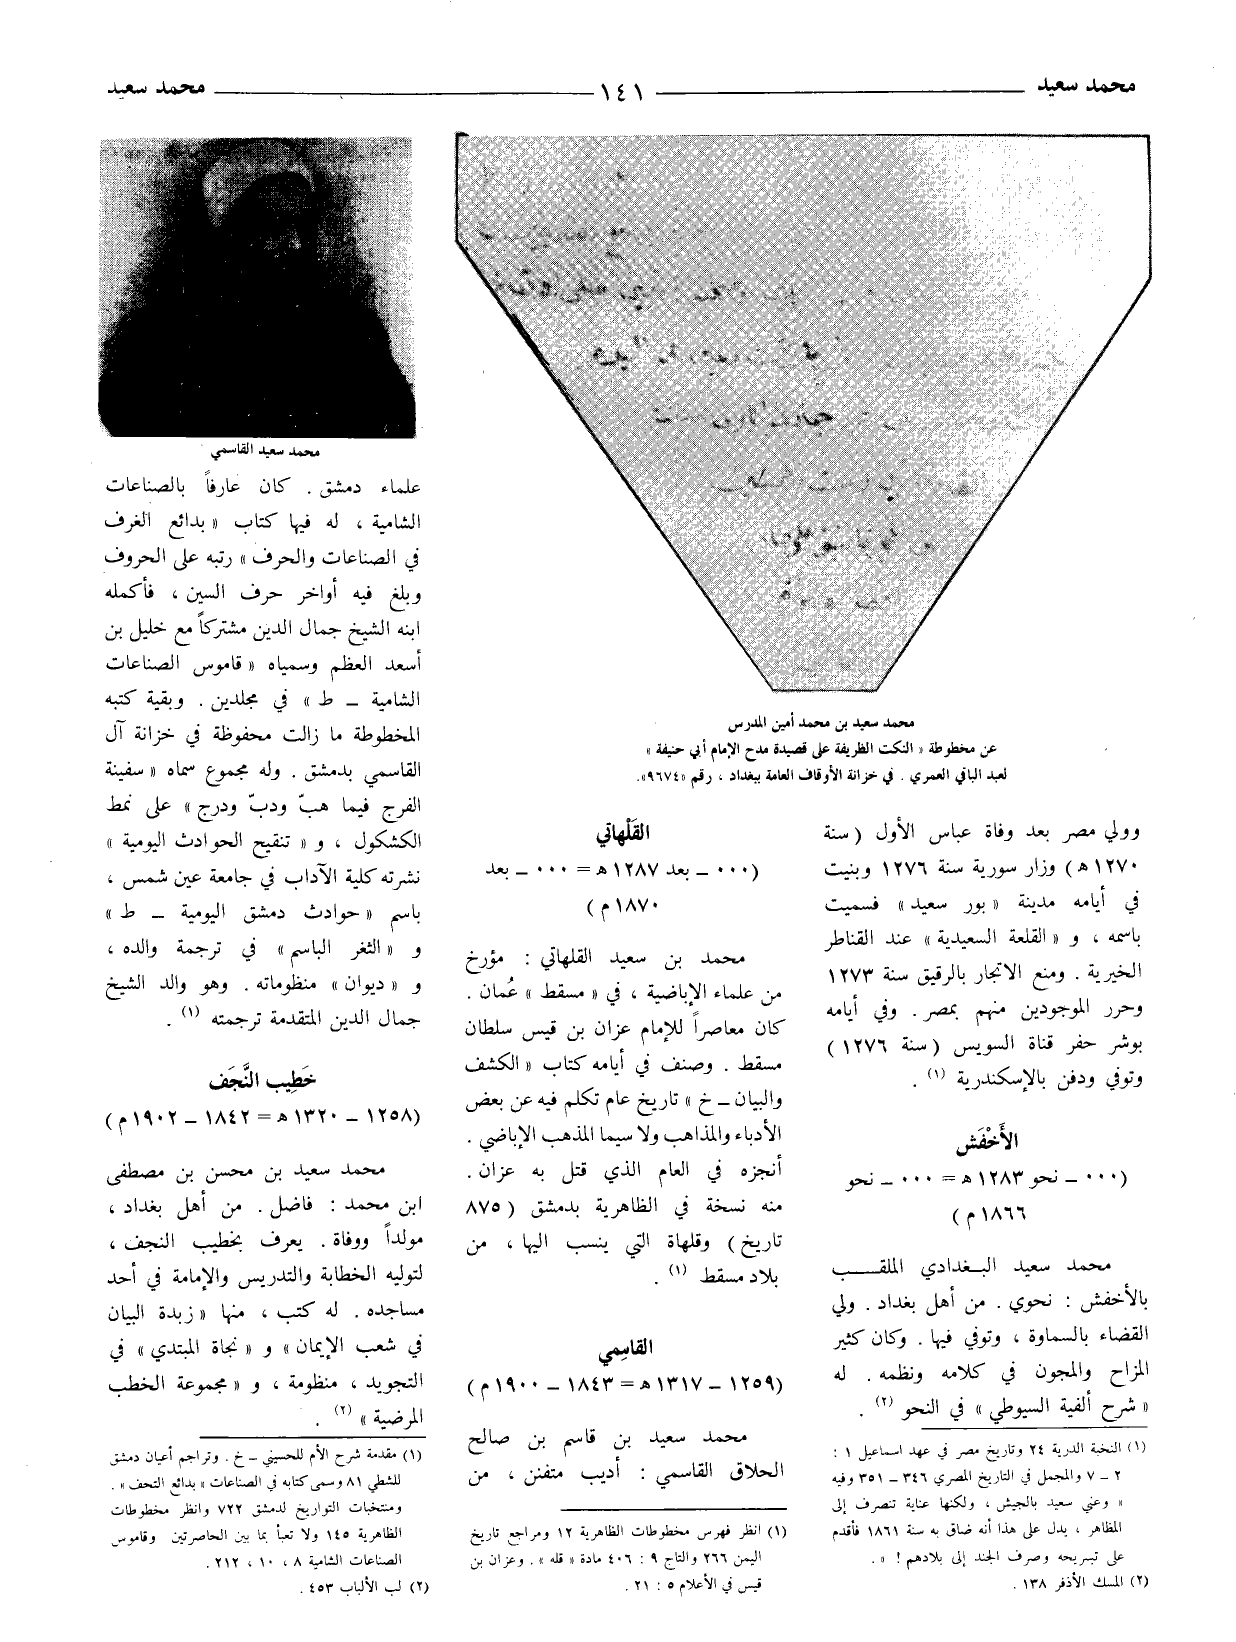 محمد سعيد ١٤١ محمد سعيد
محمد سعيد بن محمد أمين المدرس
عن مخطوطة « النكت الظريفة على قصيدة مدح الإمام أبي حنيفة »
لعبد الباقي العمري . في خزانة الأوقاف العامة ببغداد ، رقم «٩٦٧٤».
وولي مصر بعد وفاة عباس الأول (سنة
١٢٧٠ ه‍) وزار سورية سنة ١٢٧٦ وبنيت
في أيامه مدينة « بور سعيد » فسميت
باسمه ، و « القلعة السعيدية » عند القناطر
الخيرية . ومنع الاتجار بالرقيق سنة ١٢٧٣
وحرر الموجودين منهم بمصر . وفي أيامه
بوشر حفر قناة السويس (سنة ١٢٧٦)
وتوفي ودفن بالإسكندرية (١) .
الأَخْفَش
(٠٠٠ – نحو ١٢٨٣ ه‍ = ٠٠٠ – نحو
١٨٦٦ م)
محمد سعيد البغدادي الملقب
بالأخفش : نحوي . من أهل بغداد . ولي
القضاء بالسماوة ، وتوفي فيها . وكان كثير
المزاح والمجون في كلامه ونظمه . له
« شرح ألفية السيوطي » في النحو (٢) .
(١) النخبة الدرية ٢٤ وتاريخ مصر في عهد اسماعيل ١ :
٢ – ٧ والمجمل في التاريخ المصري ٣٤٦ – ٣٥١ وفيه
« وعني سعيد بالجيش ، ولكنها عناية تنصرف إلى
المظاهر ، يدل على هذا أنه ضاق به سنة ١٨٦١ فأقدم
على تسريحه وصرف الجند إلى بلادهم ! » .
(٢) المسك الأذفر ١٣٨ .
القَلْهاتي
(٠٠٠ – بعد ١٢٨٧ ه‍ = ٠٠٠ – بعد
١٨٧٠ م)
محمد بن سعيد القلهاتي : مؤرخ
من علماء الإباضية ، في « مسقط » عُمان .
كان معاصراً للإمام عزان بن قيس سلطان
مسقط . وصنف في أيامه كتاب « الكشف
والبيان – خ » تاريخ عام تكلم فيه عن بعض
الأدباء والمذاهب ولا سيما المذهب الإباضي .
أنجزه في العام الذي قتل به عزان .
منه نسخة في الظاهرية بدمشق (٨٧٥
تاريخ) وقلهاة التي ينسب اليها ، من
بلاد مسقط (١) .
القاسِمي
(١٢٥٩ – ١٣١٧ ه‍ = ١٨٤٣ – ١٩٠٠ م)
محمد سعيد بن قاسم بن صالح
الحلاق القاسمي : أديب متفنن ، من
(١) انظر فهرس مخطوطات الظاهرية ١٢ ومراجع تاريخ
اليمن ٢٦٦ والتاج ٩ : ٤٠٦ مادة « قله » . وعزان بن
قيس في الأعلام ٥ : ٢١ .
محمد سعيد القاسمي
علماء دمشق . كان عارفاً بالصناعات
الشامية ، له فيها كتاب « بدائع الغرف
في الصناعات والحرف » رتبه على الحروف
وبلغ فيه أواخر حرف السين ، فأكمله
ابنه الشيخ جمال الدين مشتركاً مع خليل بن
أسعد العظم وسمياه « قاموس الصناعات
الشامية – ط » في مجلدين . وبقية كتبه
المخطوطة ما زالت محفوظة في خزانة آل
القاسمي بدمشق . وله مجموع سماه « سفينة
الفرج فيما هبّ ودبّ ودرج » على نمط
الكشكول ، و « تنقيح الحوادث اليومية »
نشرته كلية الآداب في جامعة عين شمس ،
باسم « حوادث دمشق اليومية – ط »
و « الثغر الباسم » في ترجمة والده ،
و « ديوان » منظوماته . وهو والد الشيخ
جمال الدين المتقدمة ترجمته (١) .
خَطِيب النَّجَف
(١٢٥٨ – ١٣٢٠ ه‍ = ١٨٤٢ – ١٩٠٢ م)
محمد سعيد بن محسن بن مصطفى
ابن محمد : فاضل . من أهل بغداد ،
مولداً ووفاة . يعرف بخطيب النجف ،
لتوليه الخطابة والتدريس والإمامة في أحد
مساجده . له كتب ، منها « زبدة البيان
في شعب الإيمان » و « نجاة المبتدي » في
التجويد ، منظومة ، و « مجموعة الخطب
المرضية » (٢) .
(١) مقدمة شرح الأم للحسيني – خ . وتراجم أعيان دمشق
للشطي ٨١ وسمى كتابه في الصناعات « بدائع التحف » .
ومنتخبات التواريخ لدمشق ٧٢٢ وانظر مخطوطات
الظاهرية ١٤٥ ولا تعبأ بما بين الحاصرتين وقاموس
الصناعات الشامية ٨ ، ١٠ ، ٢١٢ .
(٢) لب الألباب ٤٥٣ .